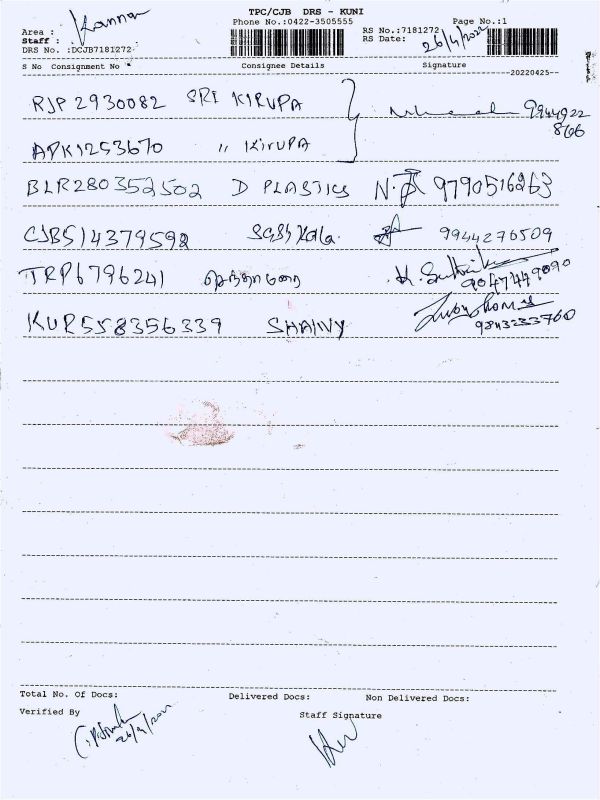 TPC/CJB DRS - KUNI
Phone No.:0422-3505555
Page No.:1
Area :
Kannan
Staff :
DRS No. :DCJB7181272
RS No.:7181272
RS Date:
26/4/2022
S No Consignment No
Consignee Details
Signature
20220425
RJP 2930082 SRI KIRUPA
9944922
866
APK1253670 " KIRUPA
BLR280352502 D PLASTICS 9790516263
CJB514379592 9944276509
TRP6796241 செந்தாமரை
9047449090
KUR558356339 SHAINY
9843233760
Total No. Of Docs:
Delivered Docs:
Non Delivered Docs:
Verified By
Staff Signature
26/4/2022